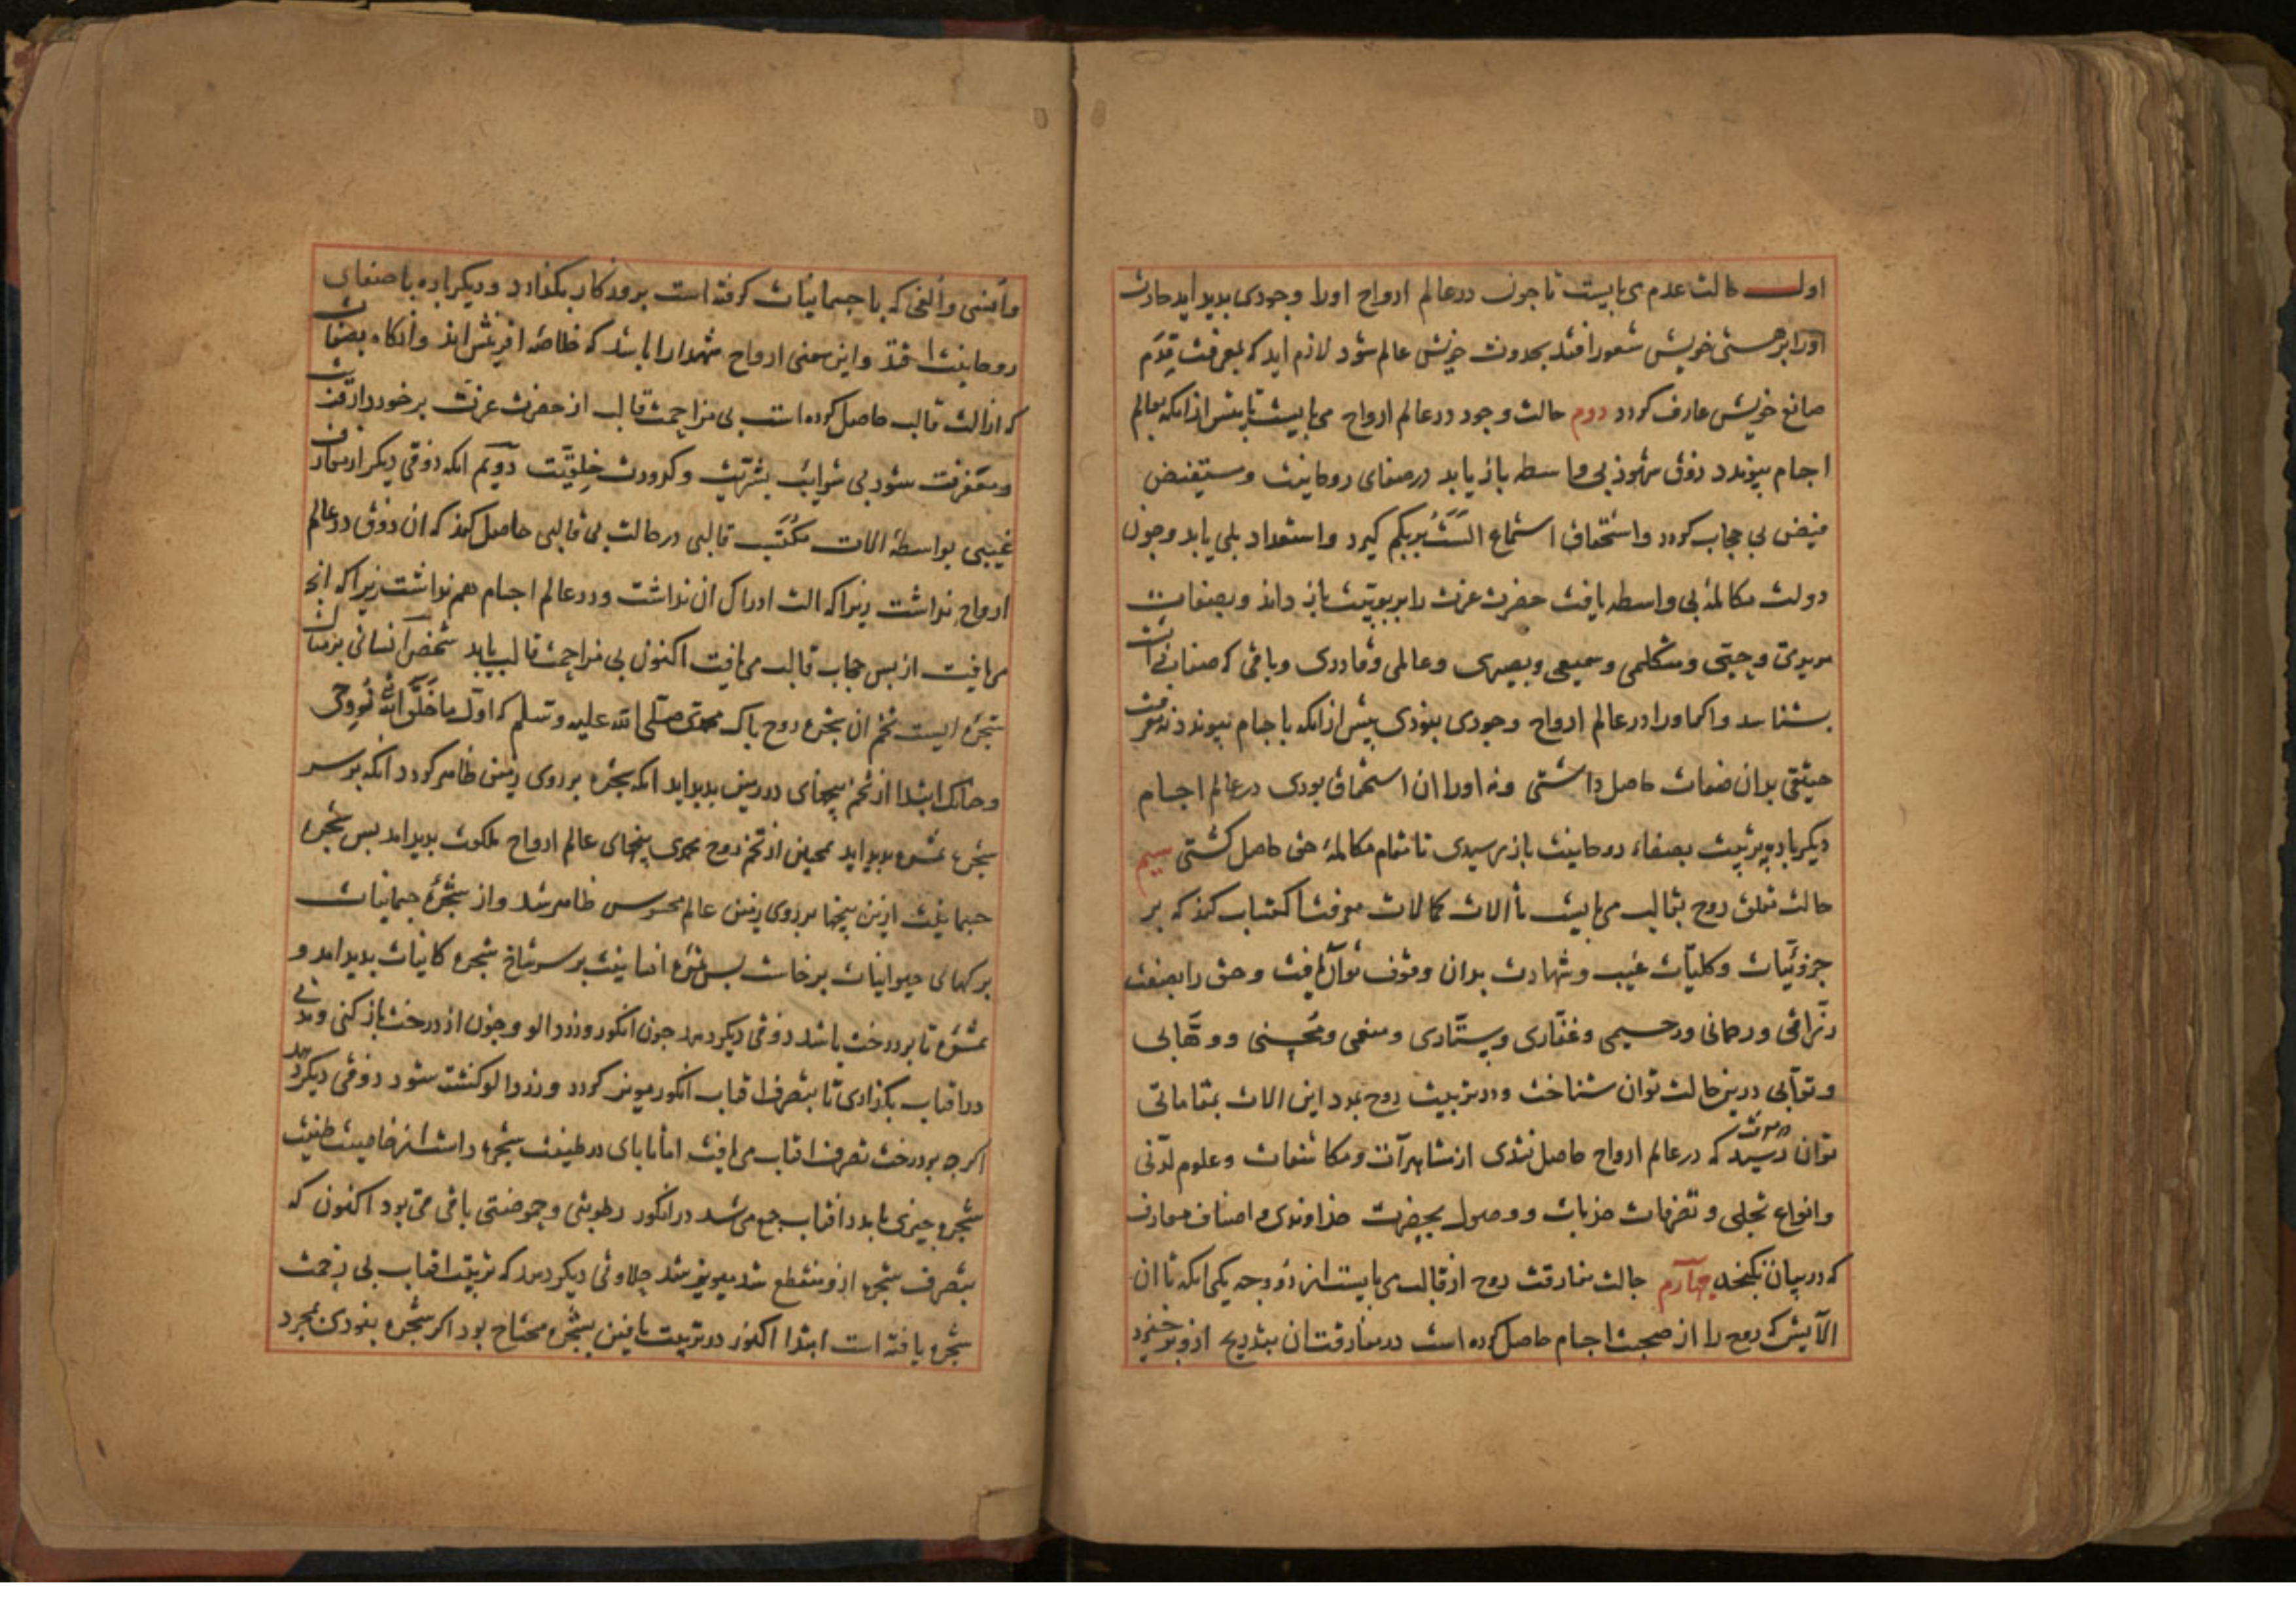 اول حالت عدم می بایست تا جون در عالم ارواح اورا وجودی بدید اید حادث
اورا بر هستی خویش شعور افتد بحدوث خویش عالم شود لازم اید که بمعرفت قِدَم
صانع خویش عارف کردد دوم حالت وجود در عالم ارواح می بایست تا بیش از انکه بعالم
اجسام بیوندد ذوق شهود بی واسطه باز یابد در صفای روحانیت و مستفیض
فیض بی حجاب کردد و استحقاق استماع الَسْتُ بربکم کیرد و استعداد بلی یابد و جون
دولت مکالمهٔ بی واسطه یافت حضرت عزت را بربوبیّت باز داند و بصفات
مریدی و حیّی و متکلمی و سمیعی و بصیری و عالمی و قادری و باقی که صفات ذات است
بشناسد و اکر او را در عالم ارواح وجودی نبودی بیش از انکه باجسام بیوندد نه معرفت
حقیقی بدان صفات حاصل داشتی و نه اورا ان استحقاق بودی در عالم اجسام
دیکرباره بتربیت بصفاء روحانیت باز رسیدی تا مقام مکالمهٔ حق حاصل کشتی سیم
حالت تعلق روح بقالب می بایست تا الات کمالات معرفت اکتساب کند که بر
جزویّات و کلیّات غیب و شهادت بدان وقوف توان یافت و حق را بصفت
رزّاقی و رحمانی و رحیمی و غفّاری و ستّاری و منعمی و محسنی و وهّابی
و توّابی درین حالت توان شناخت و در تربیت روح بمدد این الات بمقاماتی
توان رسید در معرفت که در عالم ارواح حاصل نشدی از مشاهدات و مکاشفات و علوم لدنّی
و انواع تجلی و تصرفات جذبات و وصول بحضرت خداوندی و اصناف معارف
که در بیان نکنجد چهارم حالت مفارقت روح از قالب می بایست از دو وجه یکی انکه تا ان
الایش که روح را از صحبت اجسام حاصل کرده است در مفارقت ان بتدریج ازو برخیزد
و انسی و الفی که با جسمانیات کرفته است بروزکار بکذارد و دیکرباره با صفای
روحانیت افتد و این معنی ارواح شهدا را باشد که خلاصه افرینش اند و انکاه بصفات
که از الت قالب حاصل کرده است بی مزاحمت قالب از حضرت عزت برخوردار قربت
و معرفت شود بی شوایب بشریّت و کدورت خِلقیّت دوّیم انکه ذوقی دیکر از معارف
غیبی بواسطهٔ الات مکتسب قالبی در حالت بی قالبی حاصل کند که ان ذوق در عالم
ارواح نداشت زیرا که الت ادراک ان نداشت و در عالم اجسام هم نداشت زیرا که انچه
می یافت از بس حجاب قالب می یافت اکنون بی مزاحمت قالب یابد شخص انسانی بر مثال
شجره ایست تخم ان شجره روح باک محمدی صلّی الله علیه و سلم که اول ما خلق الله روحی
و جنانک ابتدا از تخم بیخهای در زمین بدید اید انکه شجره بر روی زمین ظاهر کردد انکه بر سر
شجره ثمره بدید اید همجنین از تخم روح محمدی بیخهای عالم ارواح ملکوت بدید امد بس شجره
جسمانیت ازین بیخها بر روی زمین عالم محسوس ظاهر شد و از شجرهٔ جسمانیات
برکهای حیوانیات برخاست بس ثمره انسانیت بر سر شاخ شجره کاینات بدید امد و
ثمره تا بر درخت باشد ذوقی دیکر دهد جون انکور و زردالو و جون از درخت باز کنی و مدتی
در افتاب بکذاری تا بتصرف افتاب انکور مویز کردد و زردالو کشته شود ذوقی دیکر دهد
اکرجه بر درخت تصرف افتاب می یافت اما تا بای در طینت شجره داشت از خاصیت طینت
شجره جیزی با مدد افتاب جمع می شد در انکور رطوبتی و حموضتی باقی می بود اکنون که
تصرف شجره ازو منقطع شد مویز شد حلاوتی دیکر دهد که تربیت افتاب بی زحمت
شجره یافته است ابتدا انکور در تربیت یافتن بشجره محتاج بود اکر شجره نبودی بمجرد